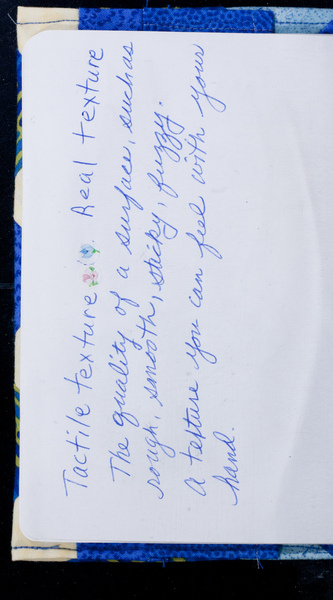 Tactile texture Real texture
The quality of a surface, such as
rough, smooth, sticky, fuzzy.
A texture you can feel with your
hand.